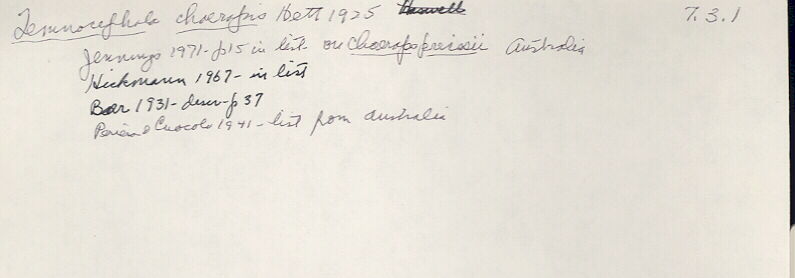 Temnocephala choerapis Hett 1925 Haswell 7.3.1
Jennings 1971-p15 in list on Choeraps preissii Australia
Hickmann 1967 - in list
Baer 1931 - descr- p 37
Pereira & Cuocolo 1941 - list from australia